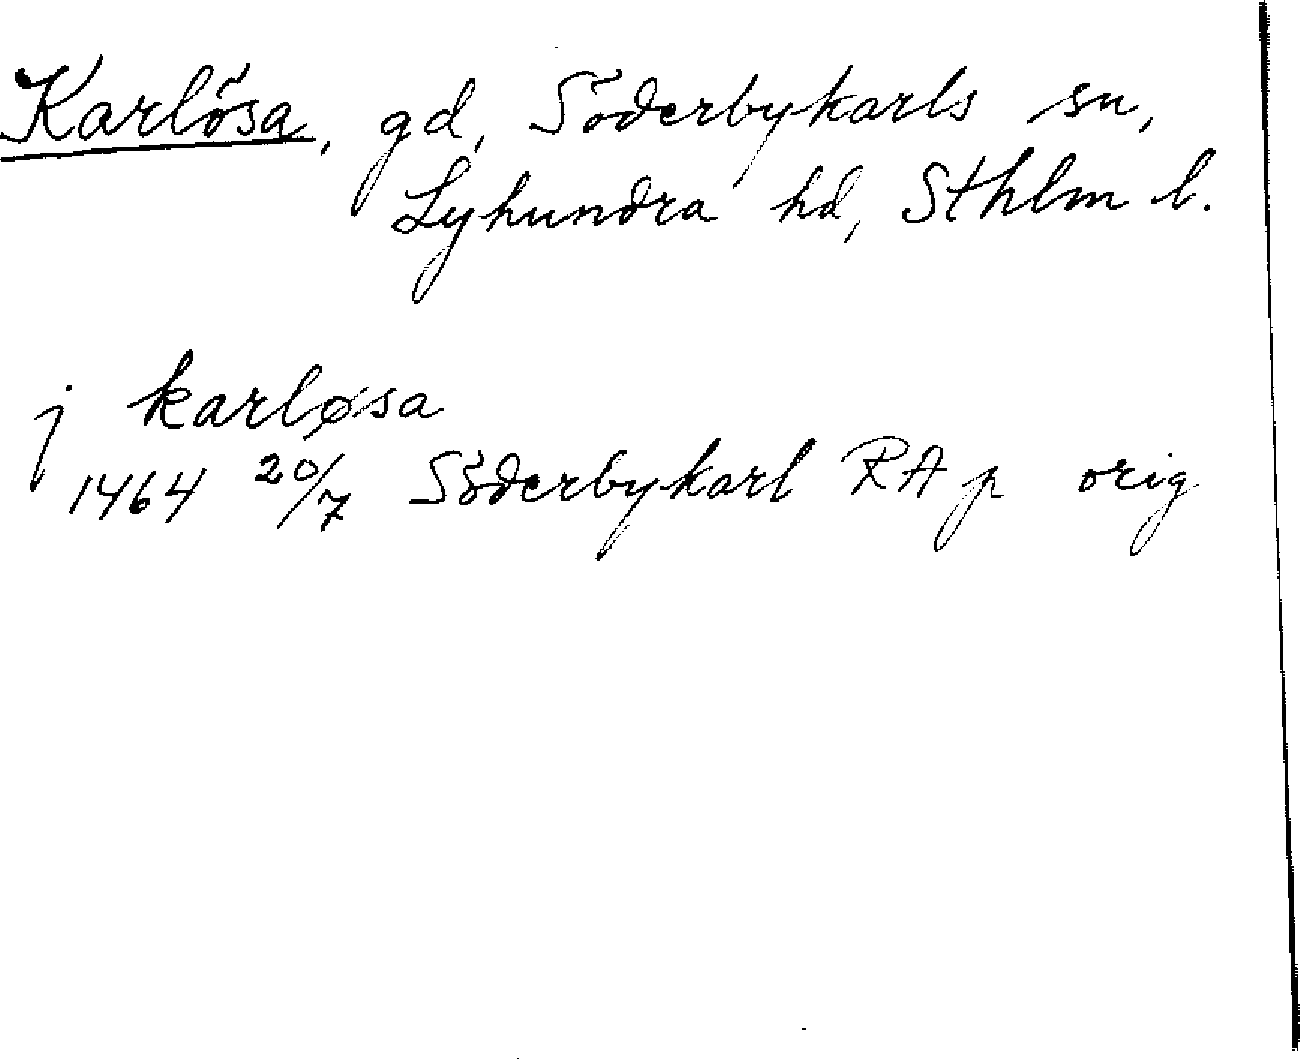 Karlösa, gd, Söderbykarls sn,
Lyhundra hd, Sthlm l.
j karløsa
1464 20/7 Söderbykarl RAp orig